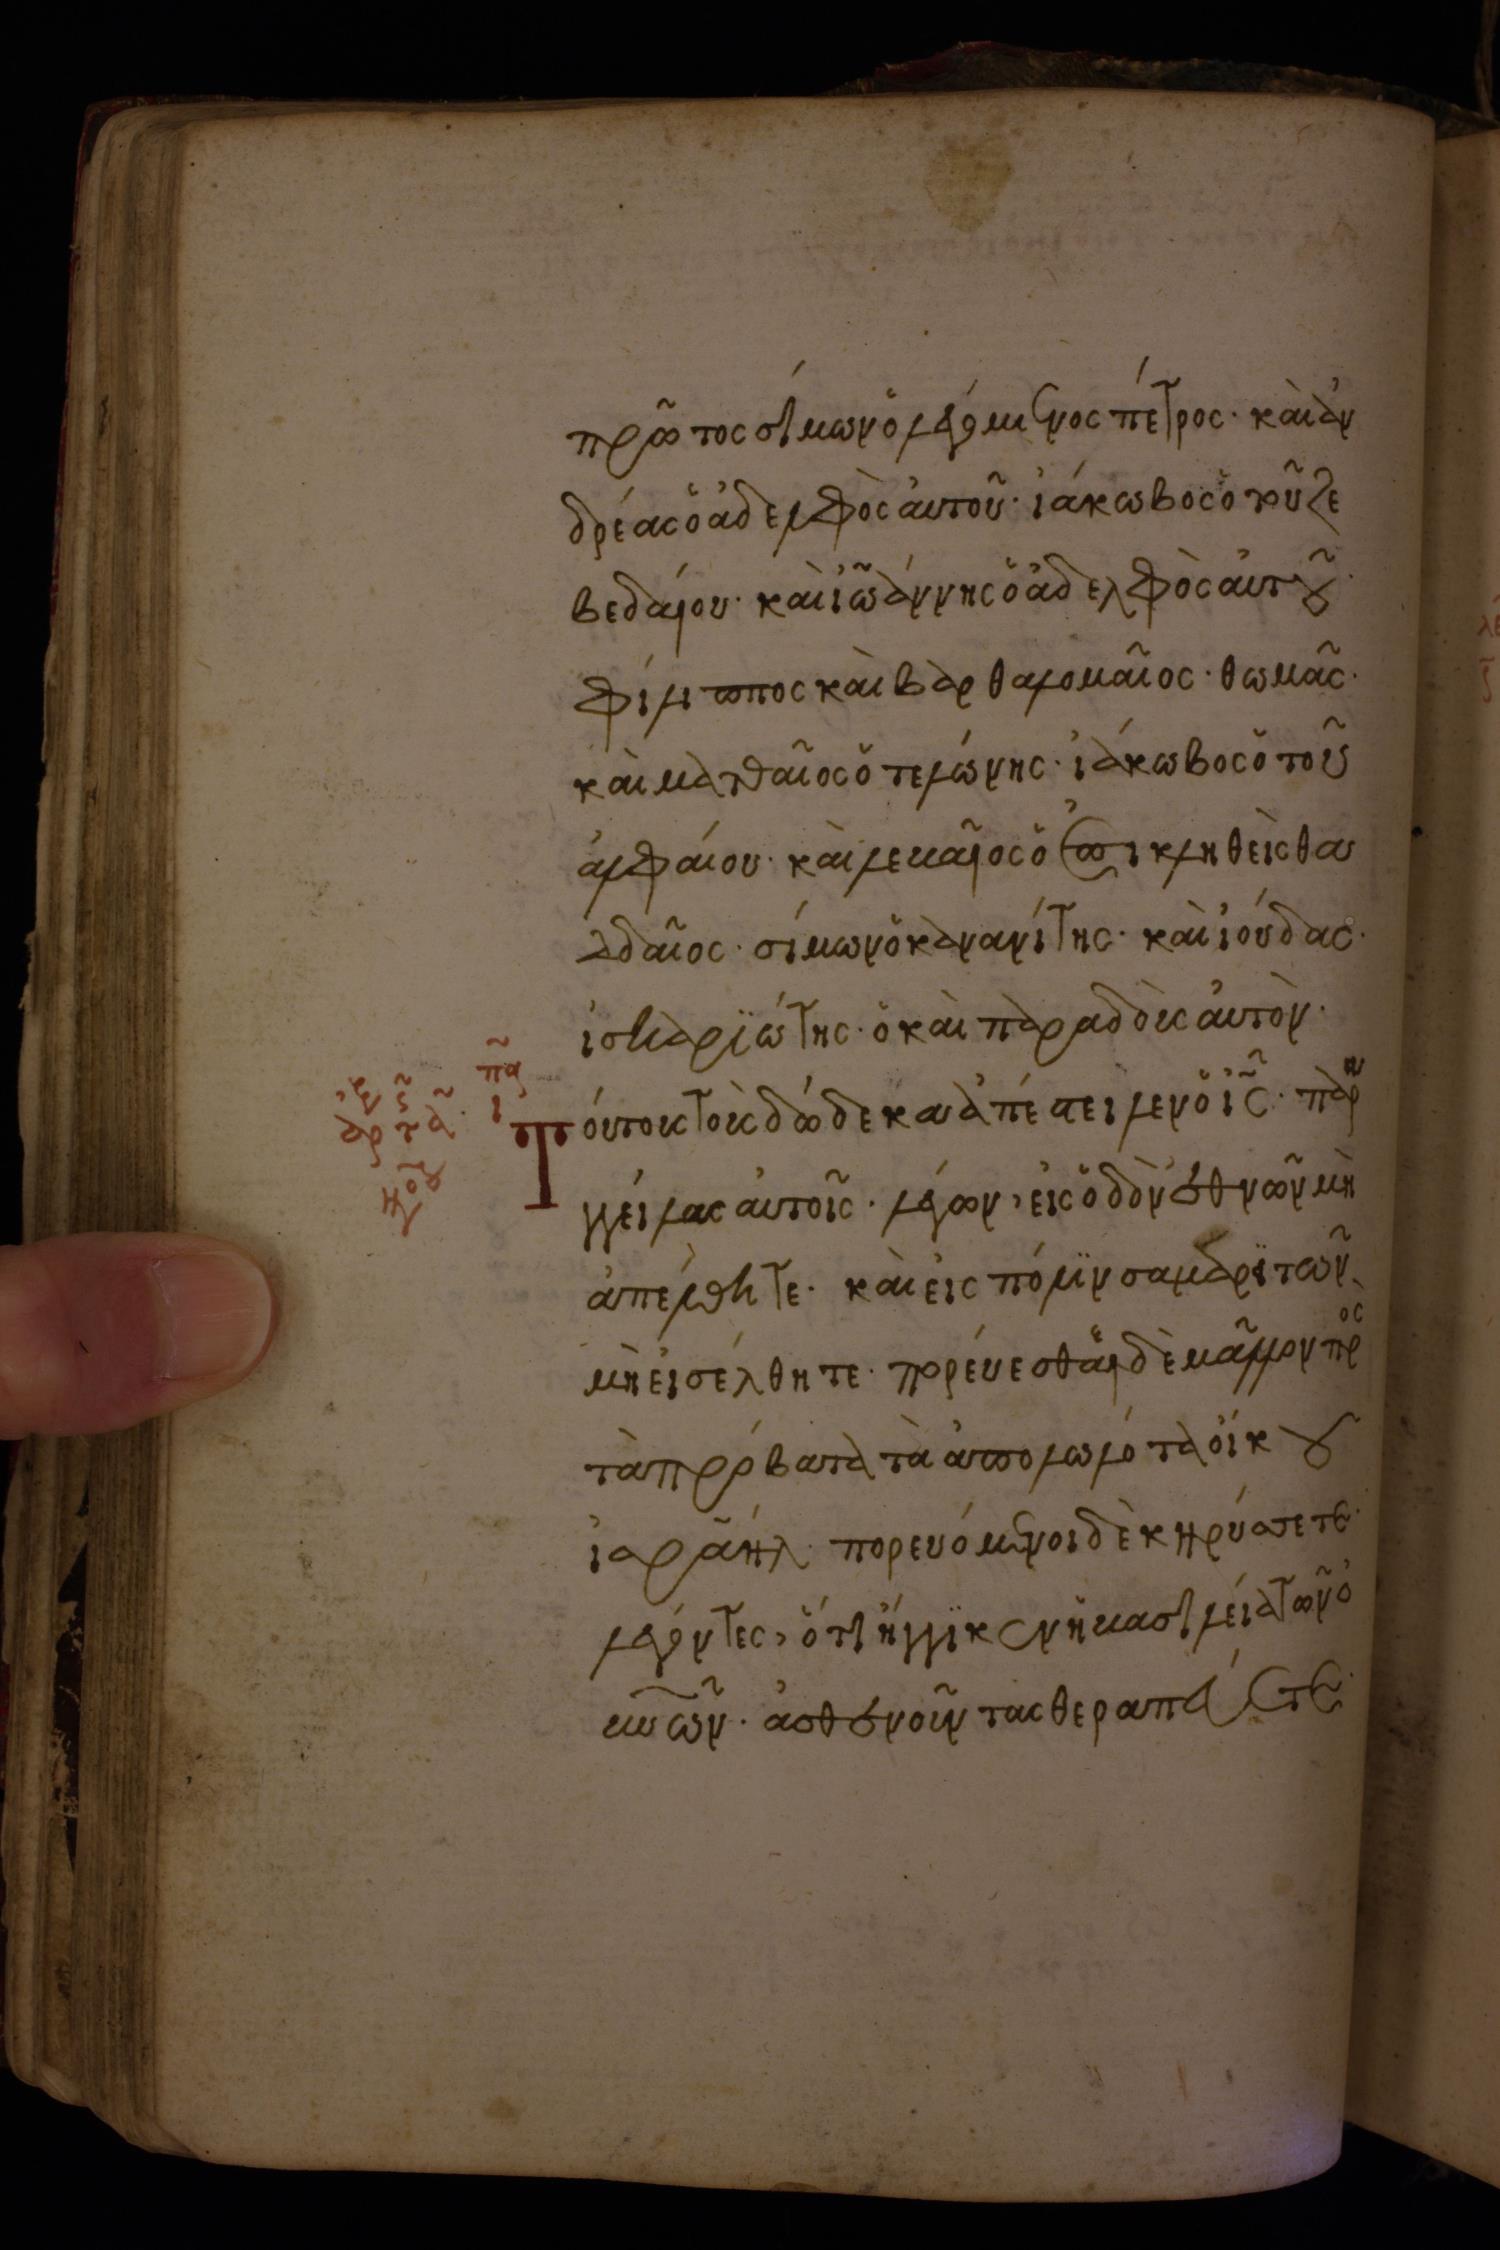 πρῶτος σίμων ὁ λεγόμενος πέτρος· καὶ ἀν
δρέας ὁ ἀδελφὸς αὐτοῦ· ἰάκωβος ὁ τοῦ ζε
βεδαίου· καὶ ἰωάννης ὁ ἀδελφὸς αὐτοῦ·
φίλιππος καὶ βαρθαλομαῖος· θωμᾶς·
καὶ ματθαῖος ὁ τελώνης· ἰάκωβος ὁ τοῦ
ἀλφαίου· καὶ λεβαῖος ὁ ἐπικληθεὶς θα
δδαῖος· σίμων ὁ κανανίτης· καὶ ἰούδας·
ἰσκαριώτης· ὁ καὶ παραδδοὺς αὐτὸν·
Τούτους τοὺς δώδεκα ἀπέστειλεν ὁ ις· παρην
γγείλας αὐτοῖς· λέγων, εἰς ὁδὸν ἐθνῶν μὴ
ἀπέλθητε· καὶ εἰς πόλιν σαμαριτῶν
μὴ εἰσέλθητε· πορεύεσθαι δὲ μᾶλλον πρὸς
τὰ πρόβατα τὰ ἀπολωλότα οἴκου
ισραήλ· πορευόμενοι δὲ κηρύσσετε·
λέγοντες, ὅτι ἤγγικεν ἡ βασιλεία τῶν ὀ
υνῶν· ἀσθενοῦντας θεραπεύετε·